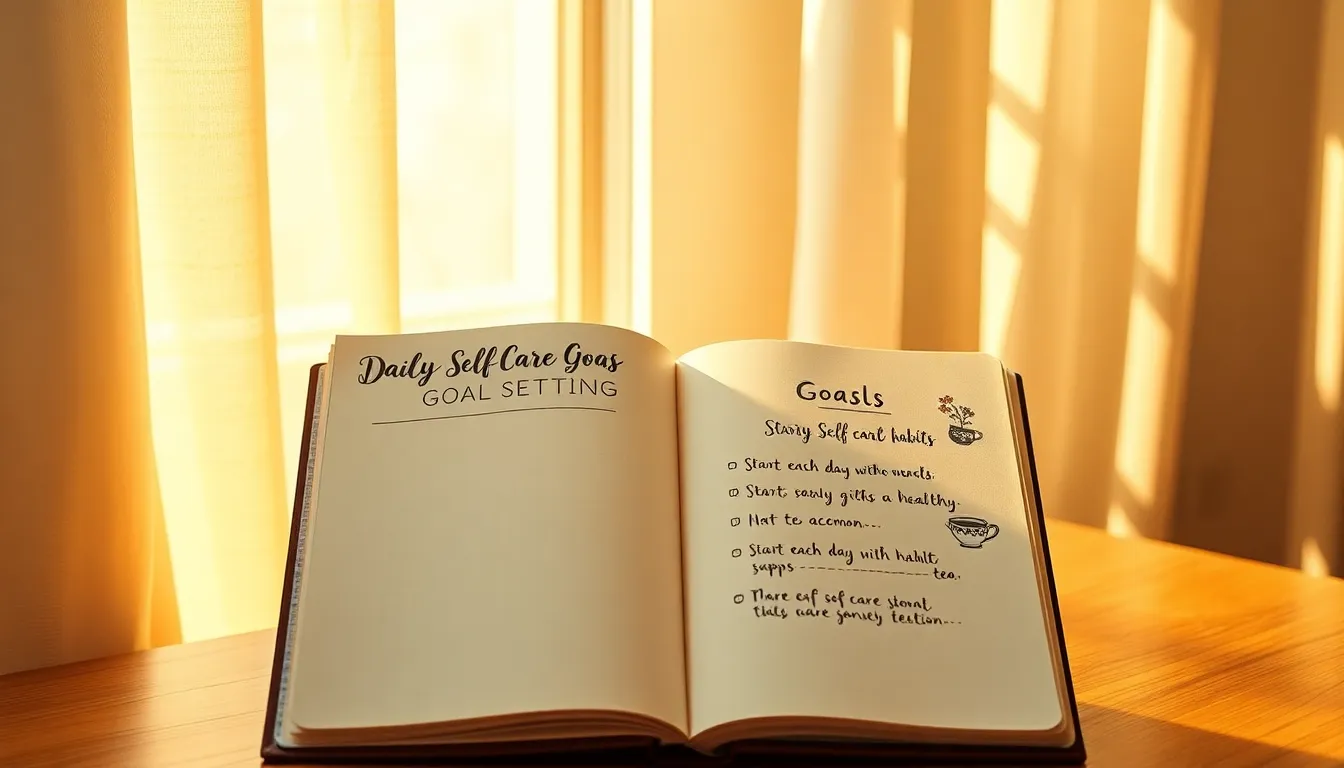 Daily Self Care Goas
GOAL SETTING
Goasls
Stasy Self carl habits
Start each day withe wends.
Start, sanly giths a healthy.
Hat te accmon...
Start each day with hablt,
sapps tea.
Thare eaf sef care stonal,
tials, aare gansey testion...